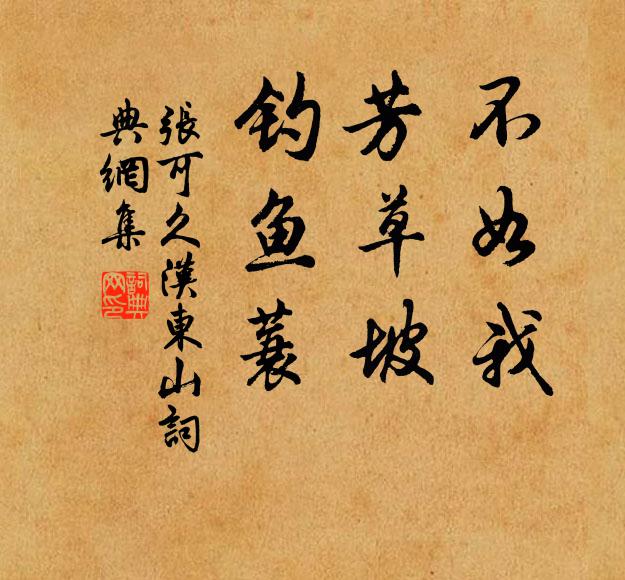 不如我
芳草坡
钓鱼蓑
張可久漢東山詞
典網集
詞典
网印